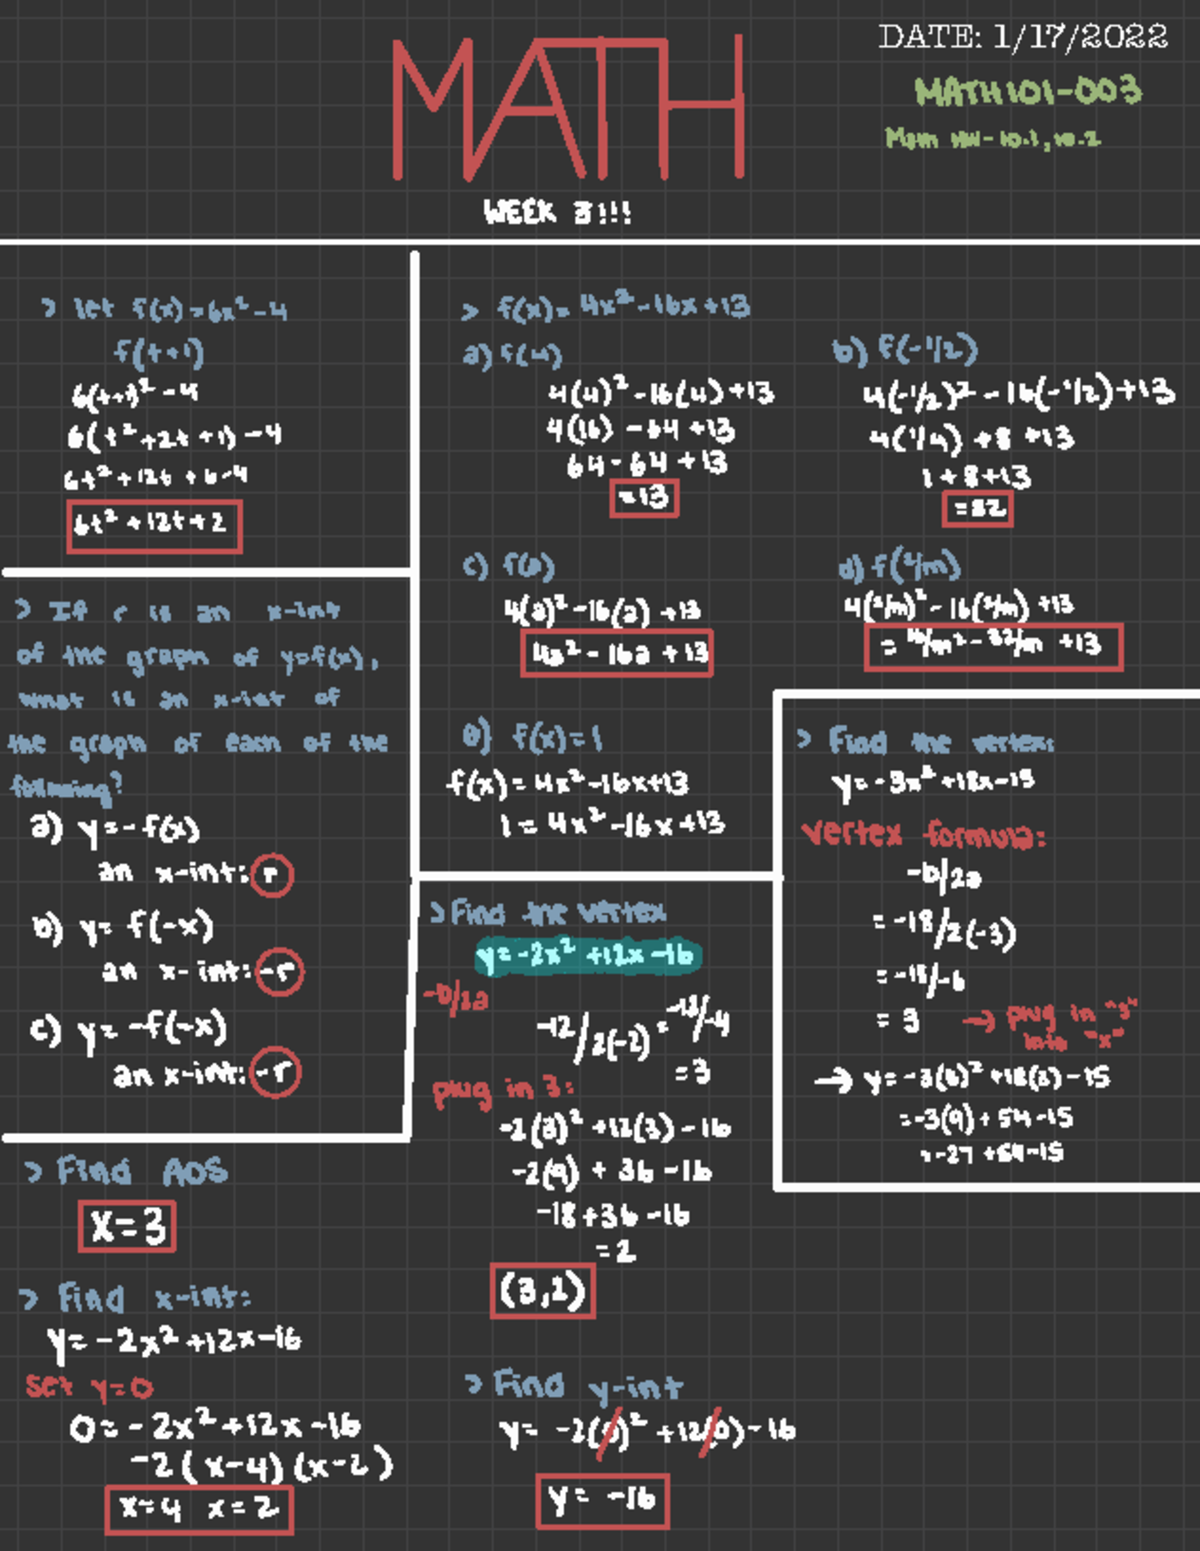 MATH
DATE: 1/17/2022
MATH101-003
Math HW-10.1, 10.2
WEEK 3!!!
> let f(x)=6x²-4
f(t+1)
6(t+1)²-4
6(t²+2t+1)-4
6t²+12t+6-4
6t²+12t+2
> If r is an x-int
of the graph of y=f(x),
what is an x-int of
the graph of each of the
following?
a) y=-f(x)
an x-int: r
b) y=f(-x)
an x-int: -r
c) y=-f(-x)
an x-int: -r
> f(x)=4x²-16x+13
a) f(4)
4(4)²-16(4)+13
4(16)-64+13
64-64+13
=13
b) f(-1/2)
4(-1/2)²-16(-1/2)+13
4(1/4)+8+13
1+8+13
=22
c) f(a)
4(a)²-16(a)+13
4a²-16a+13
d) f(2/m)
4(2/m)²-16(2/m)+13
=16/m²-32/m+13
e) f(x)=1
f(x)=4x²-16x+13
1=4x²-16x+13
> Find the vertex:
y=-3x²+18x-15
vertex formula:
-b/2a
=-18/2(-3)
=-18/-6
=3 → plug in "3"
into "x"
→ y=-3(3)²+18(3)-15
=-3(9)+54-15
=-27+54-15
> Find the vertex
y=-2x²+12x-16
-b/2a
-12/2(-2)=-12/-4
=3
plug in 3:
-2(3)²+12(3)-16
-2(9)+36-16
-18+36-16
=2
(3,2)
> Find AOS
x=3
> Find x-int:
y=-2x²+12x-16
set y=0
0=-2x²+12x-16
-2(x-4)(x-2)
x=4 x=2
> Find y-int
y=-2(0)²+12(0)-16
y=-16